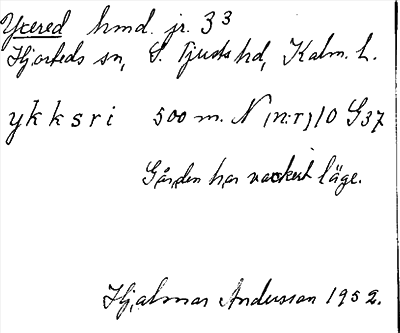 Yxered hmd. jr. 3³
Hjorteds sn, S. Tjusts hd, Kalm. L.
ykksri 500 m. N (nr) 10 G37
Gården har vackert läge.
Hjalmar Andersson 1952.